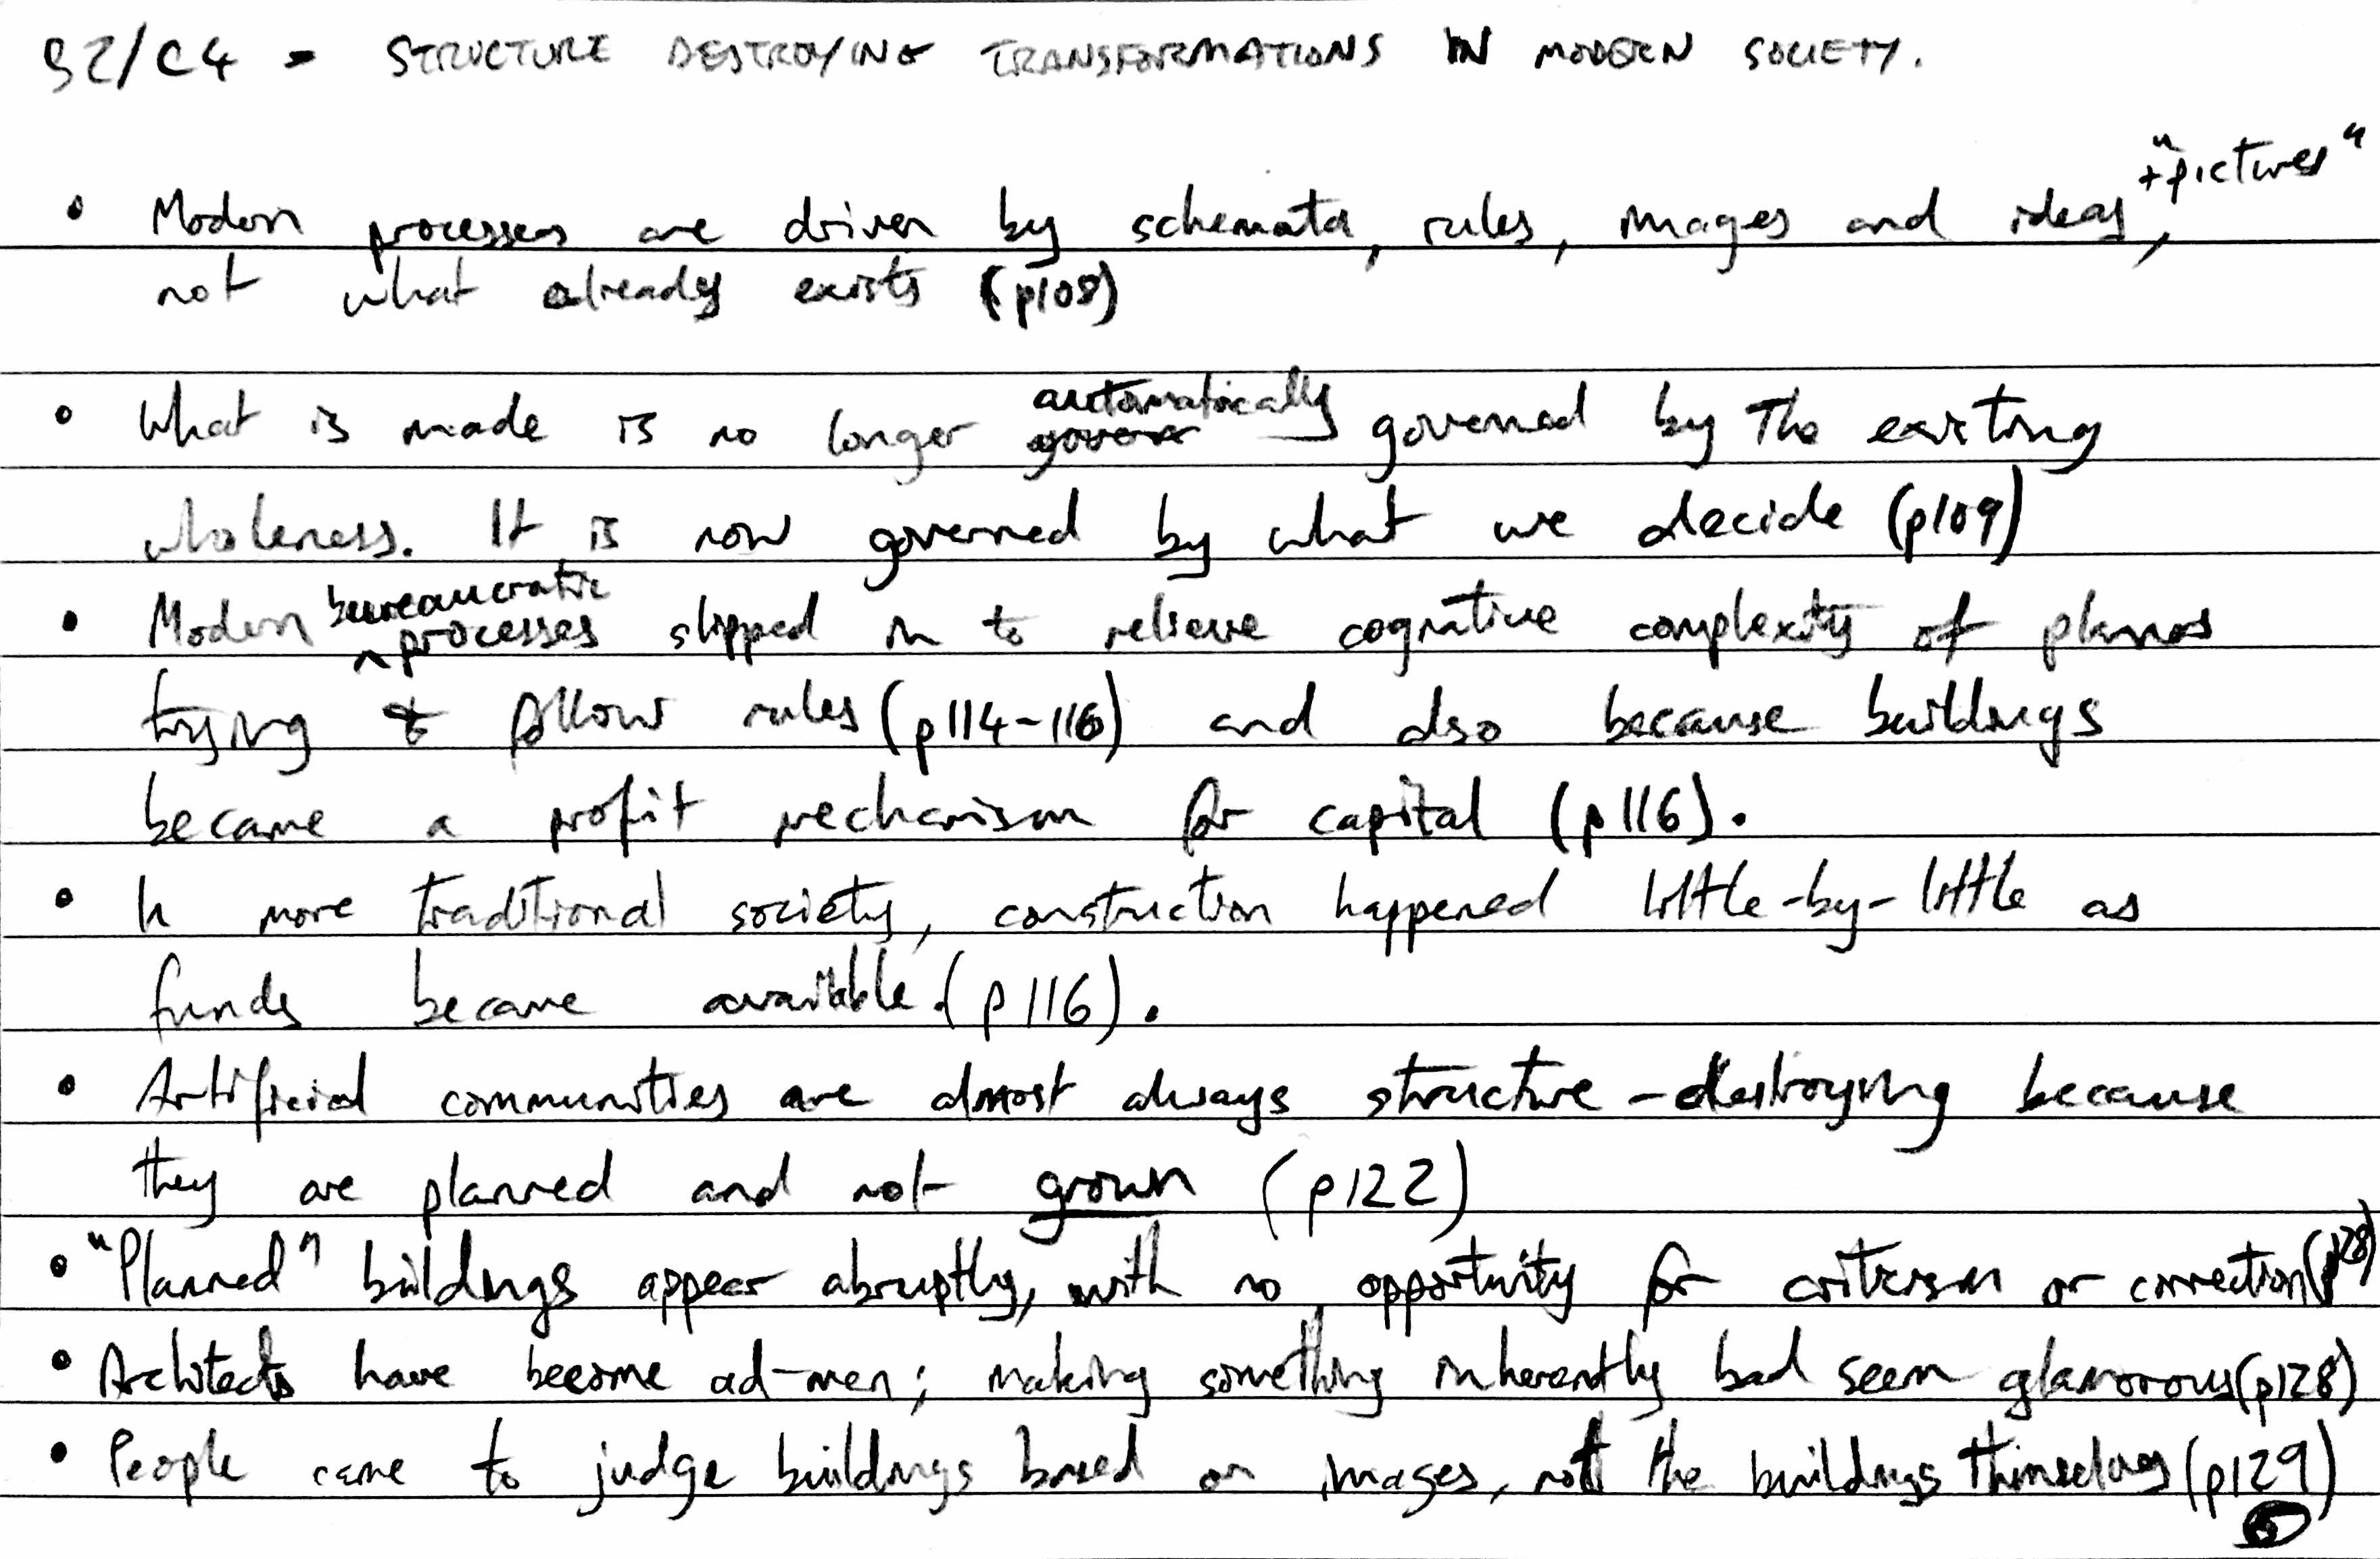 B2/C4 - STRUCTURE DESTROYING TRANSFORMATIONS IN MODERN SOCIETY.
• Modern processes are driven by schemata, rules, images and ideas, + "pictures"
not what already exists (p108)
• What is made is no longer automatically governed by the existing
wholeness. It is now governed by what we decide (p109)
• Modern bureaucratic processes slipped in to relieve cognitive complexity of planners
trying to follow rules (p114-116) and also because buildings
became a profit mechanism for capital (p116).
• In more traditional society, construction happened little-by-little as
funds became available. (p116).
• Artificial communities are almost always structure-destroying because
they are planned and not grown (p122)
• "Planned" buildings appear abruptly, with no opportunity for criticism or correction (p128)
• Architects have become ad-men; making something inherently bad seem glamorous (p128)
• People came to judge buildings based on images, not the buildings themselves (p129)